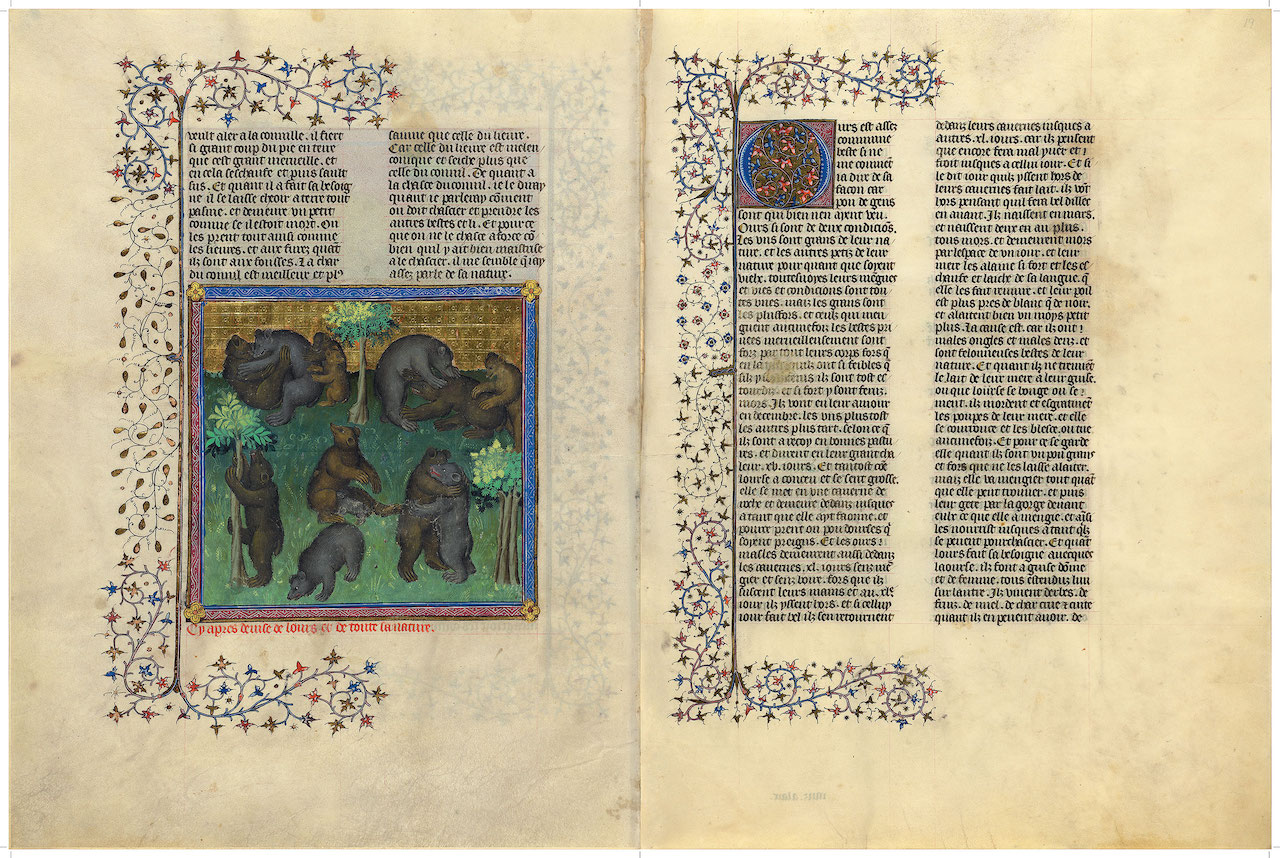 veult aler a la connille. il fiert
si grant coup du pie en terre
que cest grant merueille. et
en cela seschaufe et puis sault
sus. Et quant il a fait sa besoig
ne il se laisse cheoir a terre tout
pasme. et demeure vn petit
comme se il estoit mort. On
les prent tout ainsi comme
les lieures. et aux fures quāt
ilz sont aux fousses. La char
du connil est meilleur et plꝰ
sainne que celle du lieure.
Car celle du lieure est melen
conique et seiche plus que
celle du connil. De quant a
la chasce du connil. ie le diray
quant ie parleray cōment
on doit chascier et prendre les
autres bestes et li. Et pource
que on ne le chasce a force cō
bien quil y ait bien maistrise
a le chascier. il me semble q̄ iay
assez parle de sa nature.
Cy apres deuise de lours et de toute sa nature.
19
Ours est assez
commune
beste si ne
me conuiēt
ia dire de sa
facon car
pou de gens
sont qui bien nen ayent veu.
Ours si sont de deux condiciōs.
Les vns sont grans de leur na
ture. et les autres petiz de leur
nature pour quant que soyent
vielz. toutesuoyes leurs meurs
et vies et condicions sont tou
tes vnes. maiz les grans sont
les plus fors. et ceulz qui men
guent aucunefoiz les bestes pri
uees merueilleusement sont
forz par tout leurs corps fors q̄
en la ont si feibles q̄
silz y ilz sont tost es
tourdiz. et si fort y sont feruz.
mors. Ilz vont en leur amour
en decembre. les vns plus tost
les autres plus tart. selon ce q̄
ilz sont a recoy en bonnes pastu
res. et durent en leur grant cha
leur .xv. iours. Et tantost cōe
lourse a conceu et se sent grosse.
elle se met en vne cauerne de
roche et demeure dedanz iusques
a tant que elle ayt faonne. et
pource prent on pou dourses q̄
soyent preigns. Et les ours
masles demeurent aussi dedanz
les cauernes .xl. iours senz mē
gier et senz boire. fors que ilz
sucent leurs mains et au .xle
iour ilz yssent hors. et si celluy
iour fait bel ilz sen retournent
dedanz leurs cauernes iusques a
autres .xl. iours. car ilz pensent
que encore fera mal yuer et
froit iusques a cellui iour. Et si
le dit iour quilz yssent hors de
leurs cauernes fait lait. ilz vōt
hors pensant quil fera bel dillec
en auant. Ilz naissent en mars.
et naissent deux en au plus.
tous mors. et demeurent mors
par lespace de vn iour. et leur
mere les alaine si fort et les es
chaufe et laiche de sa langue. q̄
elle les fait reuiure. et leur poil
est plus pres de blanc q̄ de noir.
et alaitent bien vn moys petit
plus. La cause est. car ilz ont
males ongles et males denz. et
sont felonneuses bestes de leur
nature. Et quant ilz ne treuuēt
le lait de leur mere a leur guise.
ou que lourse se bouge ou se
ment. ilz mordent et esgratinēt
les poupes de leur mere. et elle
se courrouce et les blesce. ou tue
aucunefoiz. Et pour ce se garde
elle quant ilz sont vn pou grans
et fors que ne les laisse alaiter.
maiz elle va mengier tout quāt
que elle peut trouuer. et puis
leur gete par la gorge deuant
eulz ce que elle a mengie. et aīsi
les nourrist iusques a tāt quilz
se peuent pourchascier. Et quāt
lours fait sa besoigne auecques
laourse. ilz font a guise dōme
et de femme. tous estenduz lun
sur lautre. Ilz viuent derbes. de
fruiz. de miel. de char crue et cuite
quant ilz en peuent auoir. de